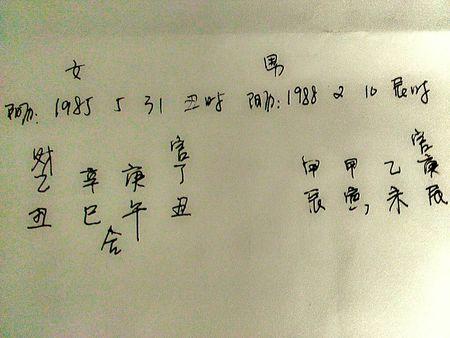 女 男
阳历: 1985 5 31 丑时 阳历: 1988 2 10 辰时
财 官 官
乙 辛 庚 丁 甲 甲 乙 庚
丑 巳 午 丑 辰 寅, 未 辰
合